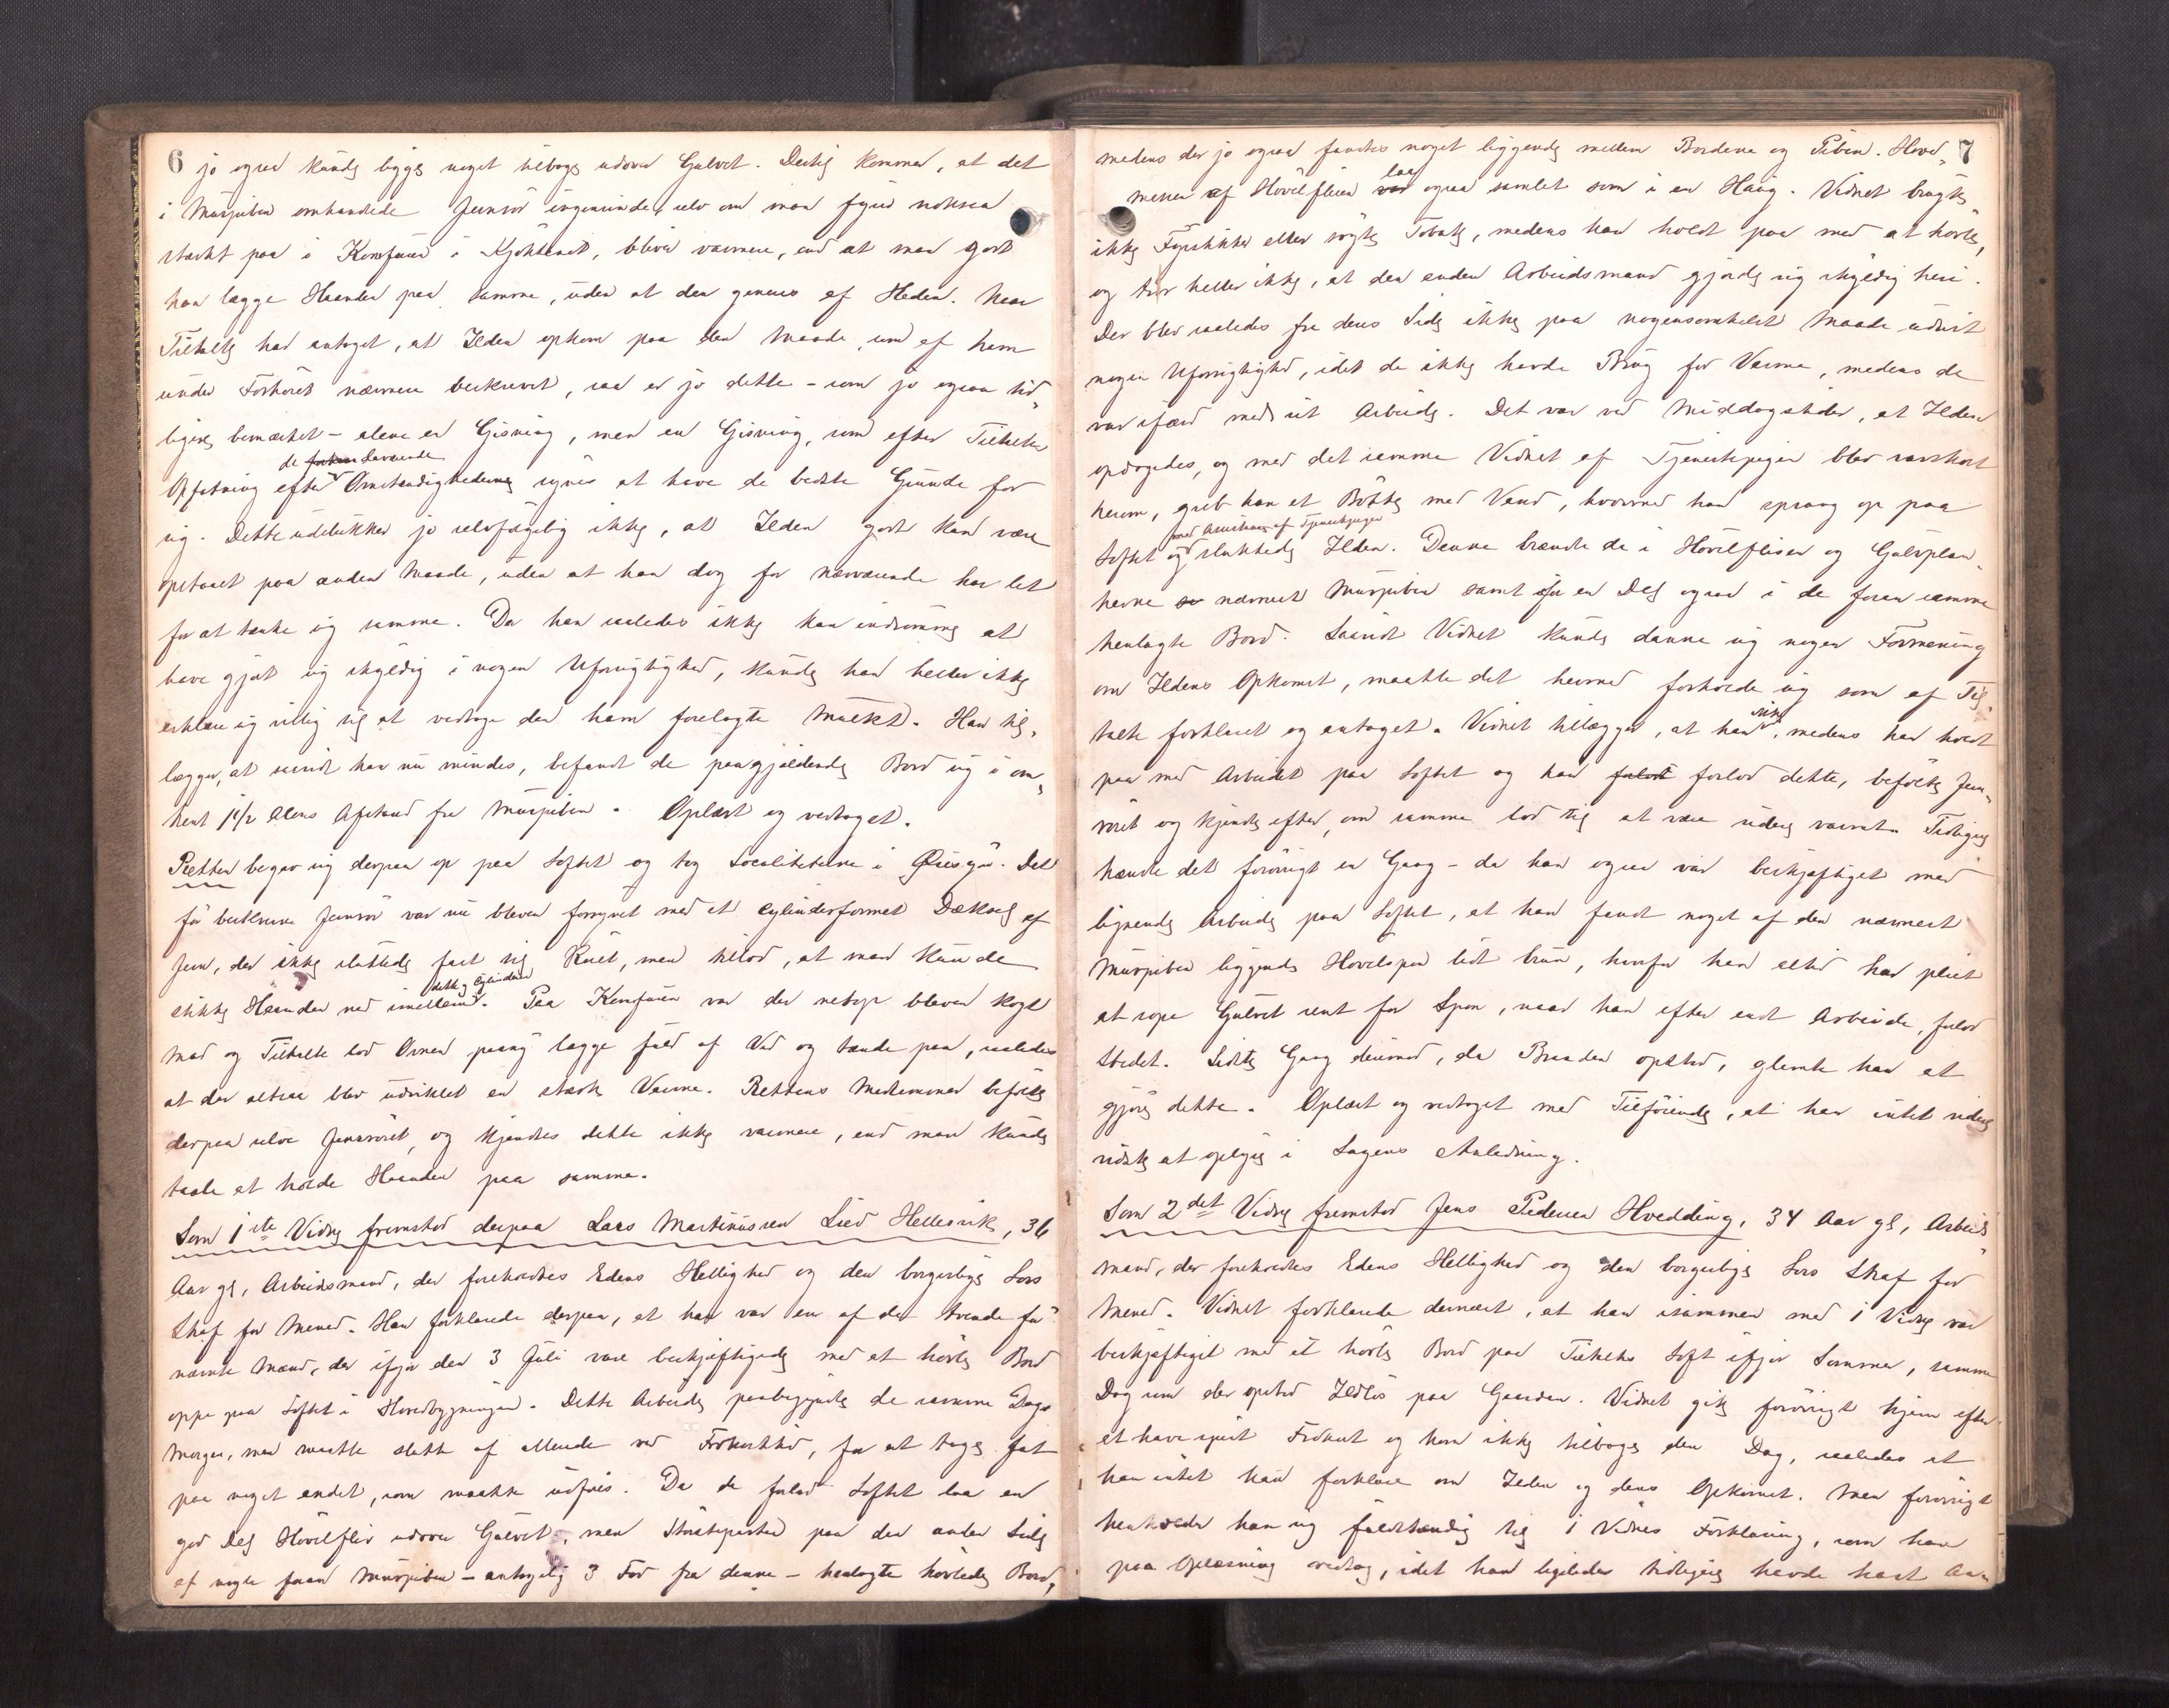 6 jo ogsaa kunde ligge noget tilbage udover Gulvet. Dertil kommer, at det
i Murpiben omhandlede Jernrør ingensinde, selv om man fyrer noksaa
stærkt paa i Komfuren i Kjøkkenet, bliver varmere, end at man godt
kan lægge Haanden paa samme, uden at den generes af Heden. Naar
Tiltalte har antaget, at Ilden opkom paa den Maade, som af ham
under Forhøret nærmere beskrevet, saa er jo dette - som jo ogsaa tid„
ligere bemærket - alene en Gisning, men en Gisning, som efter Tiltaltes
de forhaandenværende
Opfatning efter Omstændighederne synes at have de bedste Grunde for
sig. Dette udelukker jo selvfølgelig ikke, at Ilden godt kan være
opstaaet paa anden Maade, uden at han dog for nærværende har let
for at tænke sig samme. Da han saaledes ikke kan indrømme at
have gjort sig skyldig i nogen Uforsigtighed, kunde han heller ikke
erklære sig villig til at vedtage den ham forelagte Mulkt. Han til„
lægger, at saavidt han nu mindes, befandt de paagjældende Bord sig i om„
trent 1 1/2 Alens Afstand fra Murpiben. Oplæst og vedtaget.
Retten begav sig derpaa op paa Loftet og tog Localiteterne i Øiesyn. Det
før beskrevne Jernrør var nu bleven forsynet med et cylinderformet Dæksel af
Jern, der ikke sluttede fast til Røret, men tillod, at man kunde
dette og Cylinderen
stikke Haanden ned imellem. Paa Komfuren var der netop bleven kogt
Mad og Tiltalte lod Ovnen paany lægge fuld af Ved og tænde paa, saaledes
at der altsaa blev udviklet en stærk Varme. Rettens Medlemmer befølte
derpaa selve Jernrøret, og kjendtes dette ikke varmere, end man kunde
taale at holde Haanden paa samme.
Som 1ste Vidne fremstod derpaa Lars Martinussen Lied Hellesvik, 36
Aar gl, Arbeidsmand, der foreholdtes Edens Hellighed og den borgerlige Lovs
Straf for Mened. Han forklarede derpaa, at han var en af de tvende før
nævnte Mænd, der ifjor den 3 Juli vare beskjæftigede med at høvle Bord
oppe paa Loftet i Hovedbygningen. Dette Arbeide paabegyndte de samme Dags
Morgen, men maatte slutte af allerede ved Frokosttid, for at tage fat
paa noget andet, som maatte udføres. Da de forlod Loftet laa en
god Del Høvelflis udover Gulvet, men Størsteparten paa den anden Side
af nogle foran Murpiben - antagelig 3 Fod fra denne - henlagte høvlede Bord,
medens der jo ogsaa fandtes noget liggende mellem Bordene og Piben. Hoved„ 7
laa
massen af Høvelflisen var ogsaa samlet som i en Haug. Vidnet brugte
ikke Fyrstikker eller røgte Tobak, medens han holdt paa med at høvle,
og tror heller ikke, at den anden Arbeidsmand gjorde sig skyldig heri.
Der blev saaledes fra deres Side ikke paa nogensomhelst Maade udvist
nogen Uforsigtighed, idet de ikke havde Brug for Varme, medens de
var ifærd med sit Arbeide. Det var ved Middagstider, at Ilden
opdagedes, og med det samme Vidnet af Tjenestepigen blev varskoet
herom, greb han et Bøtte med Vand, hvormed han sprang op paa
med Assistance af Tjenestepigen
Loftet og slukkede Ilden. Denne brændte da i Høvelflisen og Gulvplan„
kerne nærmest Murpiben samt for en Del ogsaa i de foran samme
henlagte Bord. Saavidt Vidnet kunde danne sig nogen Formening
om Ildens Opkomst, maatte det hermed forholde sig som af Til„
ikke
talte forklaret og antaget. Vidnet tillægger, at han, medens han holdt
paa med Arbeidet paa Loftet og han forlod dette, befølte Jern„
røret og kjendte efter, om samme lod til at være videre varmt. Tidligere
hændte det forøvrigt en Gang - da han ogsaa var beskjæftiget med
lignende Arbeide paa Loftet, at han fandt noget af den nærmest
Murpiben liggende Høvelspon lidt brun, hvorfor han altid har pleiet
at sope Gulvet rent for Spon, naar han efter endt Arbeide, forlod
Stedet. Sidste Gang derimod, da Branden opstod, glemte han at
gjøre dette. Oplæst og vedtaget med Tilføiende, at han intet videre
vidste at oplyse i Sagens Anledning.
Som 2det Vidne fremstod Jens Pedersen Hvedding, 34 Aar gl, Arbeids„
mand, der foreholdtes Edens Hellighed og den borgerlige Lovs Straf for
Mened. Vidnet forklarede dernæst, at han isammen med 1 Vidne var
beskjæftiget med at høvle Bord paa Tiltaltes Loft ifjor Sommer, samme
Dag som der opstod Ildløs paa Gaarden. Vidnet gik forøvrigt hjem efter
at have spist Frokost og kom ikke tilbage den Dag, saaledes at
han intet kan forklare om Ilden og dens Opkomst. Men forøvrigt
henholder han sig fuldstændig til 1 Vidnes Forklaring, som han
paa Oplæsning vedtog, idet han ligeledes tidligere havde havt An„